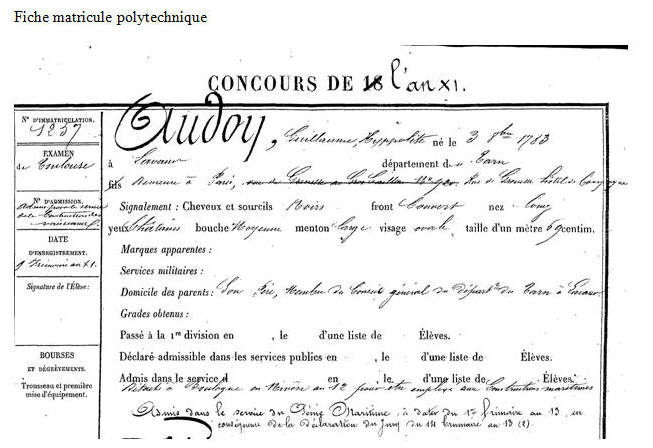 Fiche matricule polytechnique
CONCOURS DE 18 l'an XI.
N° D'IMMATRICULATION.
1257
EXAMEN
de Toulouse
N° D'ADMISSION.
Admis pour le service
de la Construction des
vaisseaux
DATE
D'ENREGISTREMENT.
9 Frimaire an XI.
Signature de l'Élève :
BOURSES
ET DÉGRÈVEMENTS.
Trousseau et première
mise d'équipement.
Audoy, Guillaume Hyppolite né le 3 8bre 1783
à Lavaur département du Tarn
fils Demeure à Paris, rue de Grenelle
Signalement : Cheveux et sourcils Noirs front Couvert nez Long
yeux Châtains bouche Moyenne menton large visage ovale, taille d'un mètre 69 centim.
Marques apparentes :
Services militaires :
Domicile des parents : Son Père, Membre du Conseil général du départt. du Tarn à Lavaur
Grades obtenus :
Passé à la 1re division en , le d'une liste de Élèves.
Déclaré admissible dans les services publics en , le d'une liste de Élèves.
Admis dans le service d en , le d'une liste de Élèves.
à Boulogne en Nivôse an 12 pour être employé aux Constructions maritimes
Admis dans le service du Génie Maritime, à dater du 1er frimaire an 13, en
conséquence de la déclaration du Jury du 14 brumaire an 13 (2).